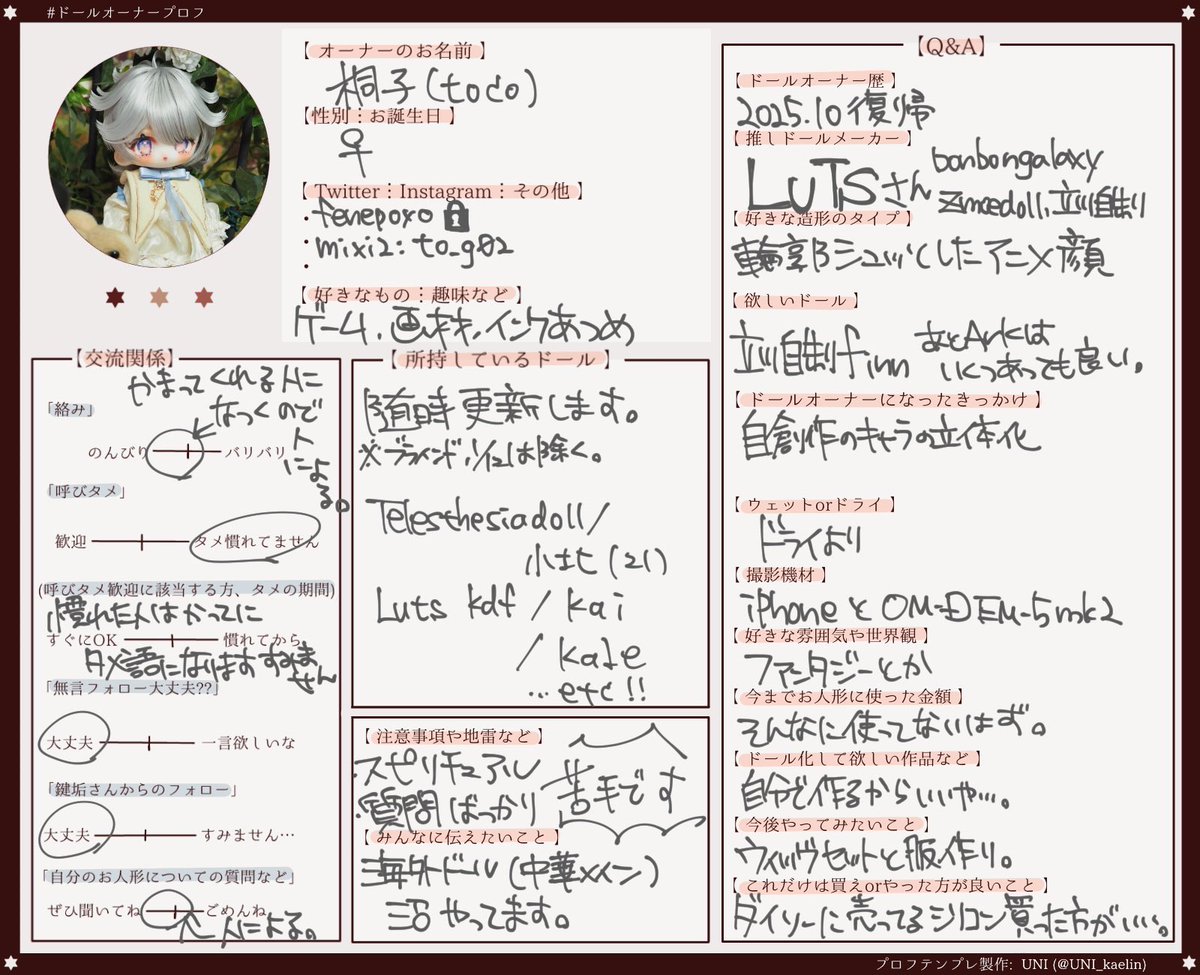 #ドールオーナープロフ
【 オーナーのお名前 】
桐子(toco)
【性別:お誕生日 】
♀
【 Twitter:Instagram:その他 】
・fenepoxo
・mixi2: to_g02
・
【 好きなもの:趣味など 】
ゲーム、画材、インクあつめ
【交流関係】
かまってくれる人に
なつくので
人
によ
る。
「絡み」
のんびり バリバリ
「呼びタメ」
歓迎 タメ慣れてません
(呼びタメ歓迎に該当する方、タメの期間)
慣れた人はかってに
すぐにOK 慣れてから
タメ語になりますすみま
せん
「無言フォロー大丈夫??」
大丈夫 一言欲しいな
「鍵垢さんからのフォロー」
大丈夫 すみません…
「自分のお人形についての質問など」
ぜひ聞いてね ごめんね
人による。
【 所持しているドール 】
随時更新します。
※ブラインド,1/12は除く。
Telesthesiadoll/
小北(21)
Luts kdf / kai
/ kale
…etc!!
【 注意事項や地雷など 】
・スピリチュアル
・質問ばっかり
苦手です
【 みんなに伝えたいこと 】
海外ドール(中華メイン)
沼やってます。
【Q&A】
【 ドールオーナー歴 】
2025.10復帰
【 推しドールメーカー 】
LUTSさん
bonbongalaxy
【 好きな造形のタイプ 】
輪郭シュッとしたアニメ顔
【 欲しいドール 】
あとArkは
いくつあっても良い。
【 ドールオーナーになったきっかけ 】
自創作のキャラの立体化
【 ウェットorドライ 】
ドライより
【 撮影機材 】
iPhoneとOM-D EM-5mk2
【 好きな雰囲気や世界観 】
ファンタジーとか
【 今までお人形に使った金額 】
そんなに使ってないはず。
【 ドール化して欲しい作品など 】
自分で作るからいいや…。
【 今後やってみたいこと 】
ウィッグセットと服作り。
【 これだけは買えorやった方が良いこと 】
ダイソーに売ってるシリコン買った方がいい。
プロフテンプレ製作: UNI (@UNI_kaelin)